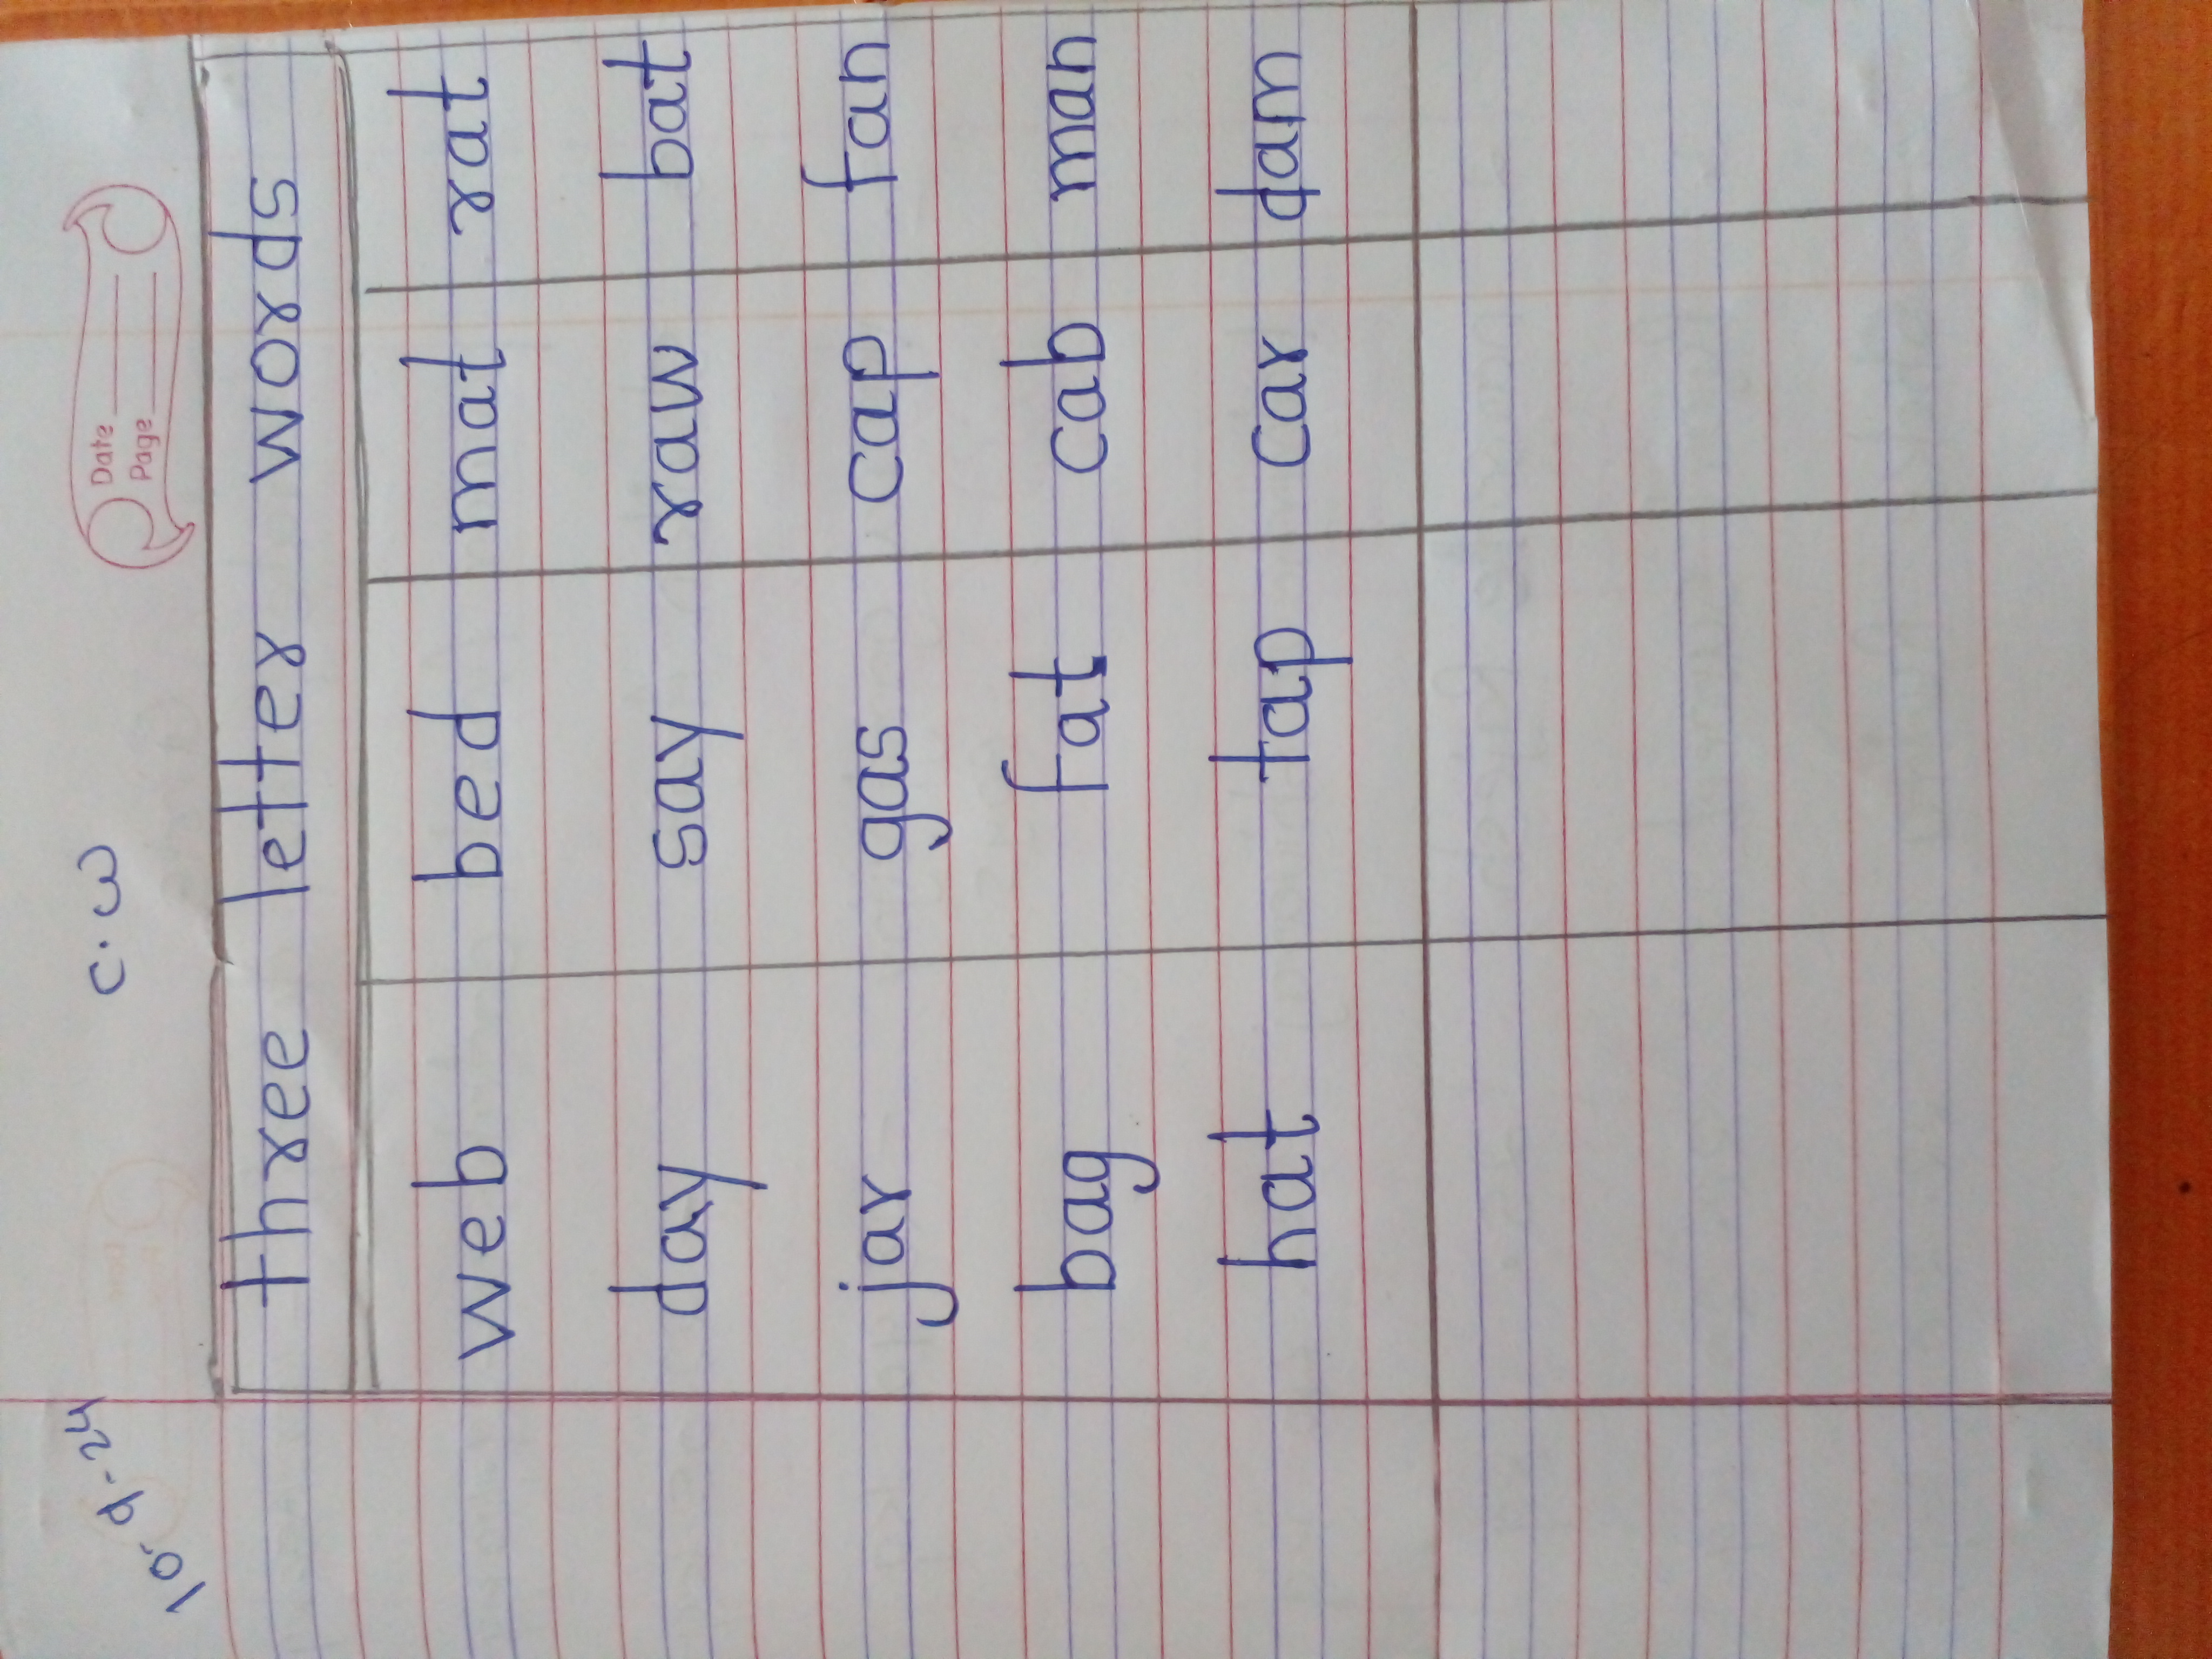 10-9-24 C.W
Date
Page
three letter words
web bed mat rat
day say raw bat
jar gas cap fan
bag fat cab man
hat tap car dam